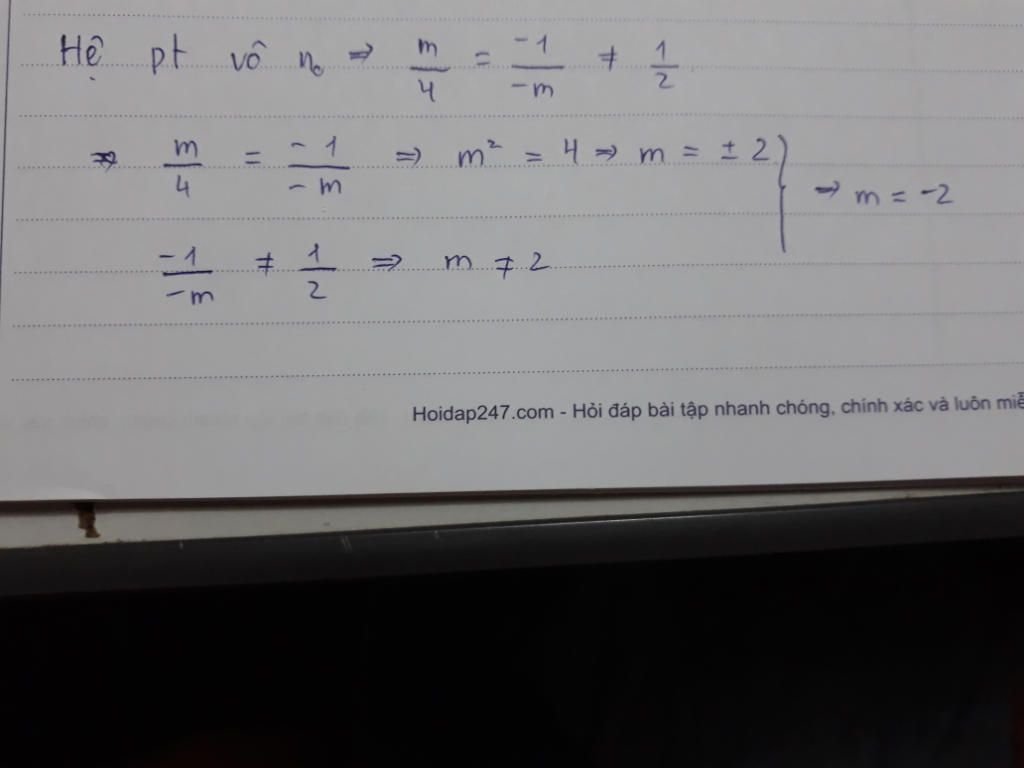 Hệ pt vô n₀ ⇒ m/4 = -1/-m ≠ 1/2
⇒ m/4 = -1/-m ⇒ m² = 4 ⇒ m = ± 2 } ⇒ m = -2
-1/-m ≠ 1/2 ⇒ m ≠ 2
Hoidap247.com - Hỏi đáp bài tập nhanh chóng, chính xác và luôn miễ